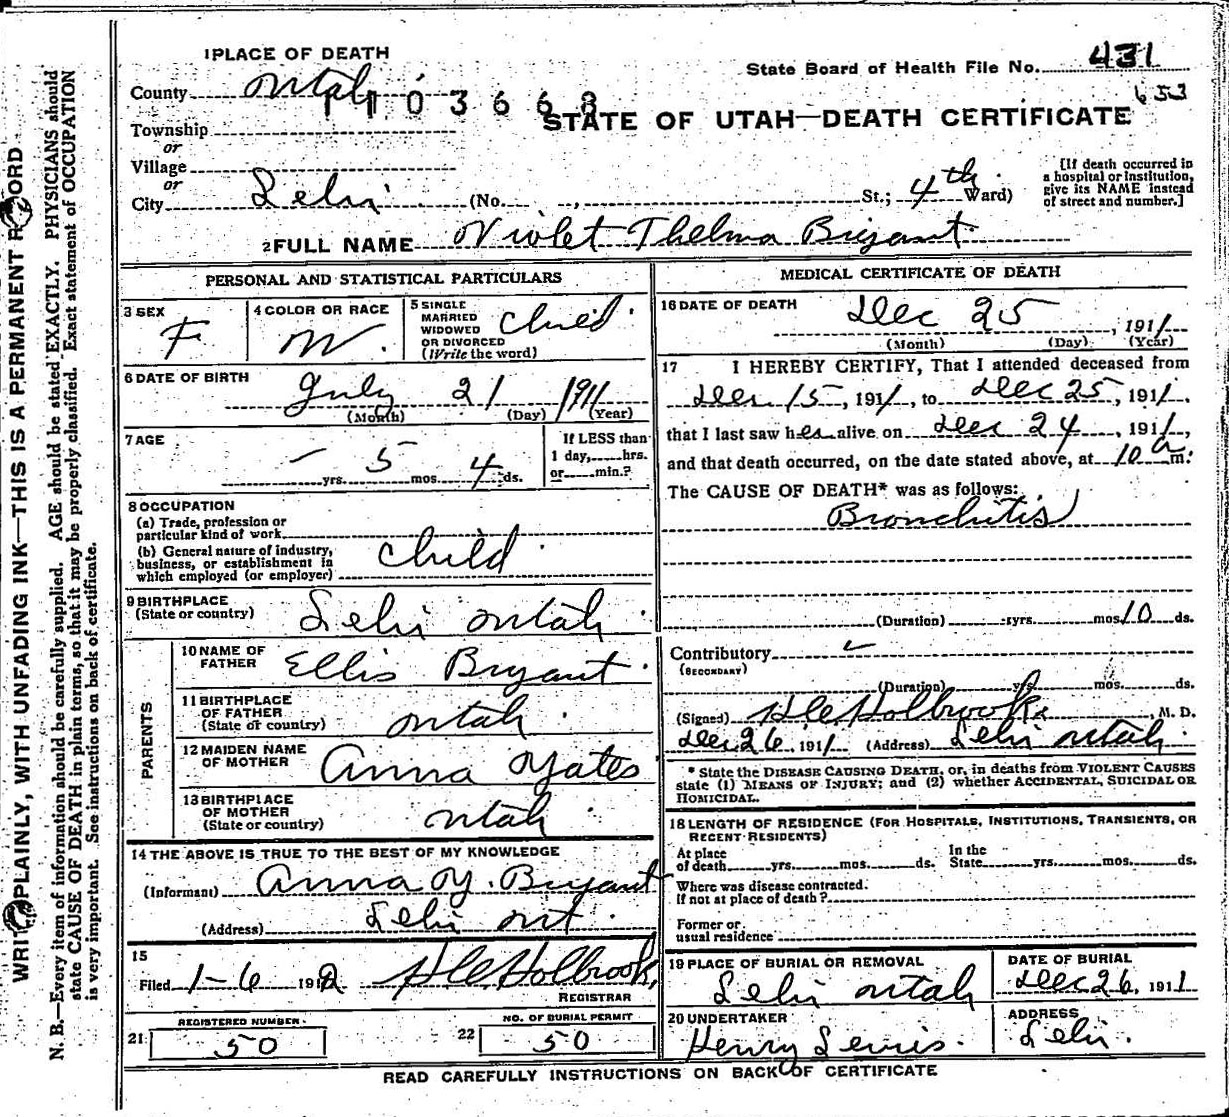 1 PLACE OF DEATH
State Board of Health File No. 431
653
County Utah
1103668
STATE OF UTAH—DEATH CERTIFICATE
Township
or
Village
or
City Lehi (No. , St.; 4th Ward)
[If death occurred in
a hospital or institution,
give its NAME instead
of street and number.]
2 FULL NAME Violet Thelma Bryant
PERSONAL AND STATISTICAL PARTICULARS
3 SEX F
4 COLOR OR RACE W.
5 SINGLE
MARRIED
WIDOWED
OR DIVORCED
(Write the word) Child
6 DATE OF BIRTH
July 21 1911
(Month) (Day) (Year)
7 AGE
— yrs. 5 mos. 4 ds.
If LESS than
1 day, hrs.
or min.?
8 OCCUPATION
(a) Trade, profession or
particular kind of work
(b) General nature of industry,
business, or establishment in
which employed (or employer) Child
9 BIRTHPLACE
(State or country) Lehi Utah
PARENTS
10 NAME OF
FATHER Ellis Bryant
11 BIRTHPLACE
OF FATHER
(State or country) Utah
12 MAIDEN NAME
OF MOTHER Anna Yates
13 BIRTHPLACE
OF MOTHER
(State or country) Utah
14 THE ABOVE IS TRUE TO THE BEST OF MY KNOWLEDGE
(Informant) Anna Y. Bryant
(Address) Lehi Ut.
15
Filed 1-6 1912 Holbrook,
REGISTRAR
REGISTERED NUMBER
21 50
NO. OF BURIAL PERMIT
22 50
MEDICAL CERTIFICATE OF DEATH
16 DATE OF DEATH
Dec 25, 1911
(Month) (Day) (Year)
17 I HEREBY CERTIFY, That I attended deceased from
Dec 15, 1911, to Dec 25, 1911.
that I last saw her alive on Dec 24, 1911,
and that death occurred, on the date stated above, at 10 a m.
The CAUSE OF DEATH* was as follows:
Bronchitis
(Duration) yrs. mos 10 ds.
Contributory
(SECONDARY)
(Duration) yrs. mos. ds.
(Signed) Holbrook, M. D.
Dec 26, 1911 (Address) Lehi Utah
* State the DISEASE CAUSING DEATH, or, in deaths from VIOLENT CAUSES
state (1) MEANS OF INJURY; and (2) whether ACCIDENTAL, SUICIDAL OR
HOMICIDAL.
18 LENGTH OF RESIDENCE (FOR HOSPITALS, INSTITUTIONS, TRANSIENTS, OR
RECENT RESIDENTS)
At place
of death yrs. mos. ds.
In the
State yrs. mos. ds.
Where was disease contracted.
If not at place of death?
Former or
usual residence
19 PLACE OF BURIAL OR REMOVAL
Lehi Utah
DATE OF BURIAL
Dec 26, 1911
20 UNDERTAKER
Henry Lewis.
ADDRESS
Lehi.
READ CAREFULLY INSTRUCTIONS ON BACK OF CERTIFICATE
WRITE PLAINLY, WITH UNFADING INK—THIS IS A PERMANENT RECORD
N. B.—Every item of information should be carefully supplied. AGE should be stated EXACTLY. PHYSICIANS should
state CAUSE OF DEATH in plain terms, so that it may be properly classified. Exact statement of OCCUPATION
is very important. See instructions on back of certificate.